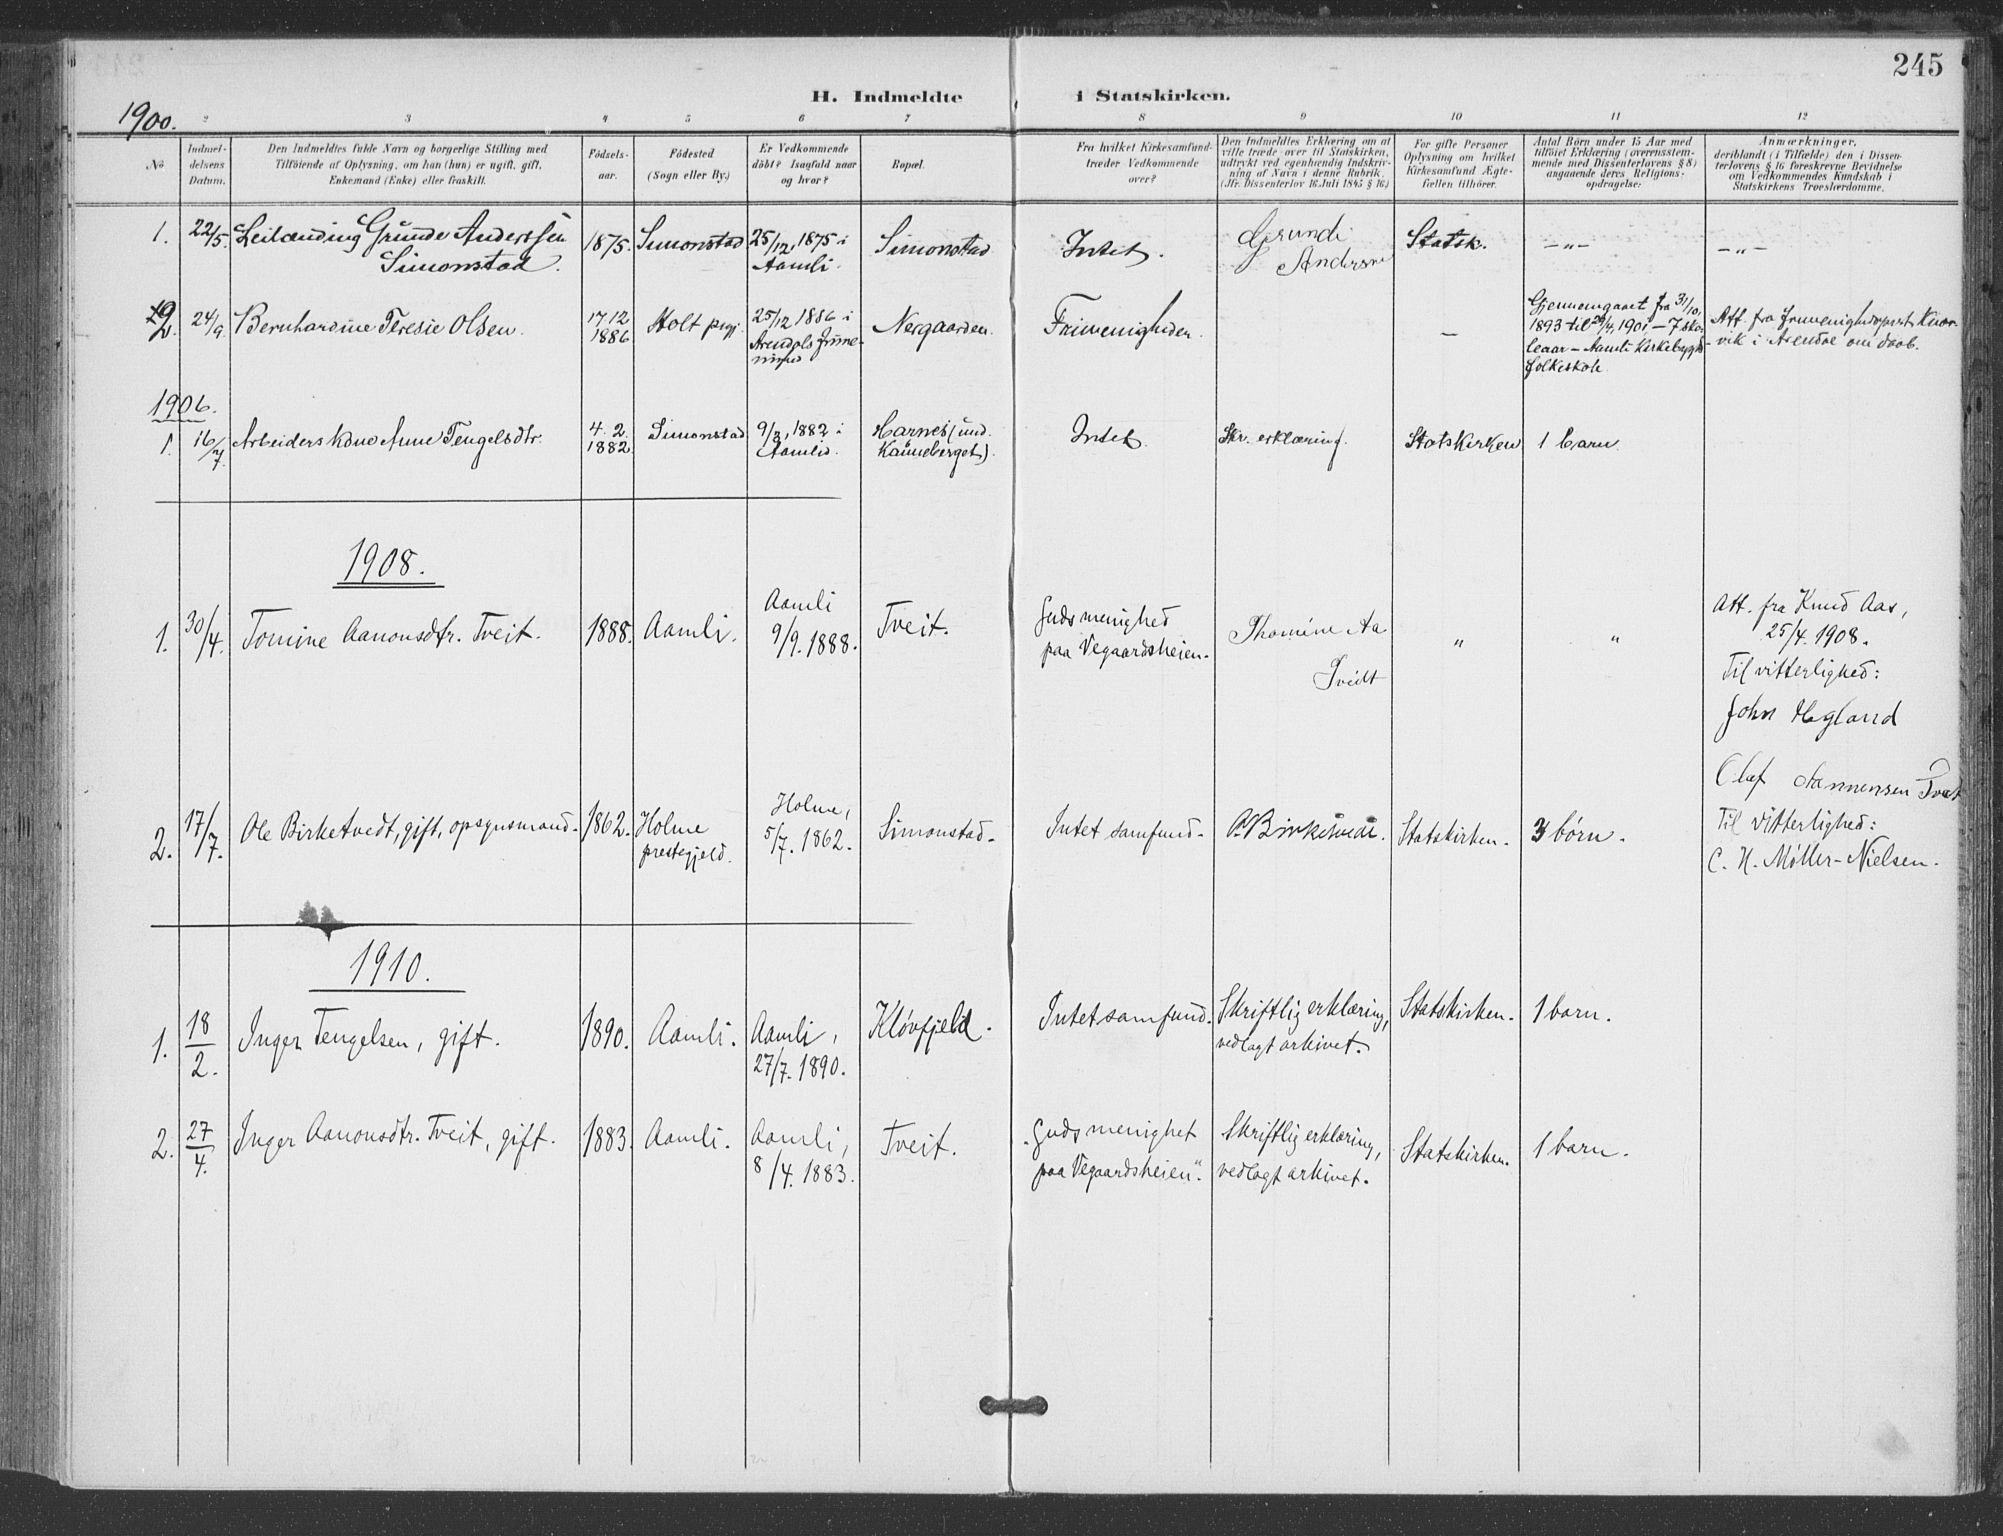 245
H. Indmeldte i Statskirken.
1900.
2 3 4 5 6 7 8 9 10 11 12
No
Indmel-
delsens
Datum.
Den Indmeldtes fulde Navn og borgerlige Stilling med
Tilföiende af Oplysning, om han (hun) er ugift, gift,
Enkemand (Enke) eller fraskilt.
Födsels-
aar.
Födested
(Sogn eller By.)
Er Vedkommende
döbt? Isaafald naar
og hvor?
Bopæl.
Fra hvilket Kirkesamfund
træder Vedkommende
over?
Den Indmeldtes Erklæring om at
ville træde over til Statskirken,
udtrykt ved egenhændig Indskriv-
ning af Navn i denne Rubrik.
(Jfr. Dissenterlov 16 Juli 1845 § 16.)
For gifte Personer
Oplysning om hvilket
Kirkesamfund Ægte-
fællen tilhörer.
Antal Börn under 15 Aar med
tilföiet Erklæring (overensstem-
mende med Dissenterlovens § 8)
angaaende deres Religions-
opdragelse:
Anmærkninger,
deriblandt (i Tilfælde) den i Dissen-
terlovens § 16 foreskrevne Bevidnelse
om Vedkommendes Kundskab i
Statskirkens Troeslærdomme.
1. 22/5. Leilænding Grunde Anderssen
Simonstad.
1875. Simonstad
25/12, 1875 i
Aamli.
Simonstad
Intet.
Grunde
Andersen
Statsk.
—"—
—"—
2. 24/9. Bernhardine Teresie Olsen.
17 12
1886
Holt prgj.
25/12 1886 i
Arendals frime-
nighed
Nergaarden.
Frimenigheden.
—
Gjennemgaaet fra 31/10
1893 til 29/4 1901 — 7 sko-
leaar — Aamli Kirkebygds
folkeskole
Att. fra frimenighedsprest Knar-
vik i Arendal om daab.
1906.
1. 16/7 Arbeiderskone Anne Tengelsdtr.
4. 2.
1882
Simonstad
9/3, 1882 i
Aamlid.
Harnes (und.
Kanneberget).
Intet.
Skr. erklæring.
Statskirken
1 barn.
1908.
1. 30/4. Tomine Aanonsdtr. Tveit.
1888. Aamli.
Aamli
9/9. 1888.
Tveit.
Guds menighed
paa Vegaardsheien.
Thomine Aa
Tvedt
"
"
Att. fra Knud Aas,
25/4. 1908.
Til vitterlighed:
John Hegland
Olaf Aannensen Tveit
2. 17/7. Ole Birketvedt, gift, opsynsmand.
1862. Holme
prestegjeld.
Holme,
5/7. 1862.
Simonstad.
Intet samfund.
O. Birketvedt.
Statskirken.
3 börn.
Til vitterlighed:
C. H. Möller-Nielsen.
1910.
1. 18/2. Inger Tengelsen, gift.
1890. Aamli.
Aamli,
27/7. 1890.
Klövfjeld.
Intet samfund.
Skriftlig erklæring,
vedlagt arkivet.
Statskirken.
1 barn.
2. 27/4. Inger Aanonsdtr. Tveit, gift.
1883. Aamli.
Aamli,
8/4. 1883.
Tveit.
"Guds menighet
paa Vegaardsheien".
Skriftlig erklæring,
vedlagt arkivet.
Statskirken.
1 barn.